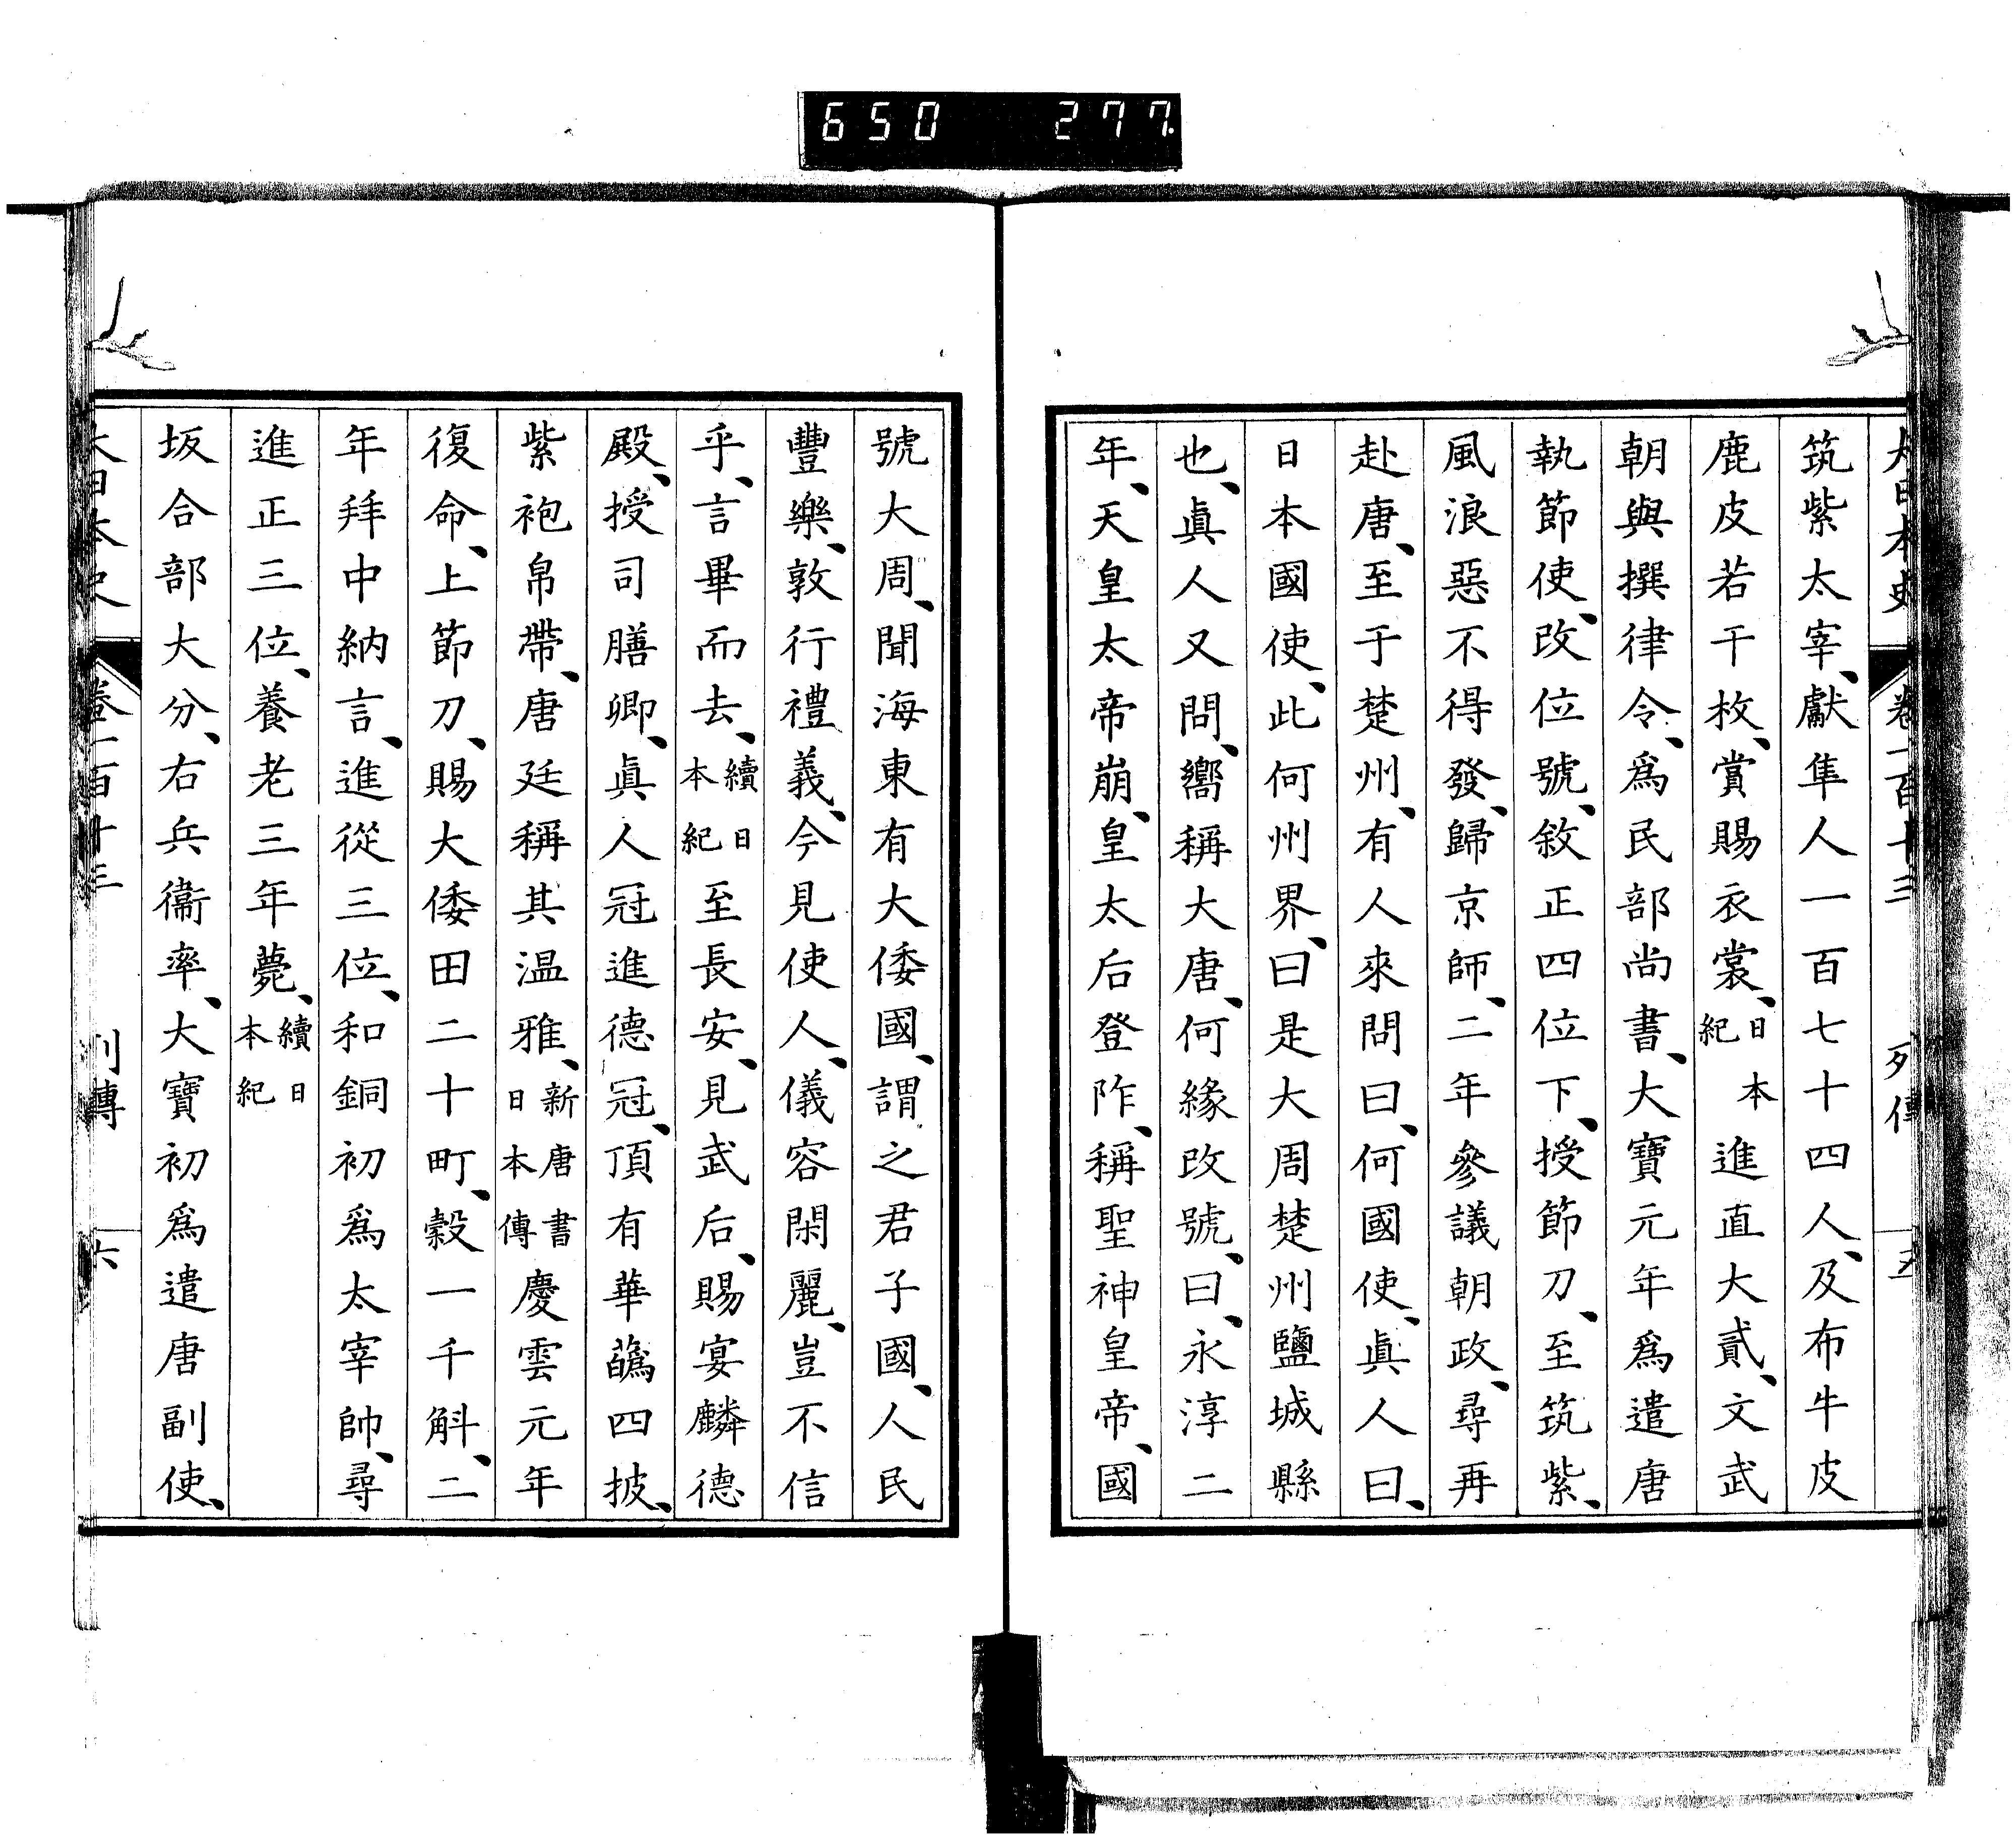 650 277.
大日本史 卷一百十三 列傳 五
筑紫太宰、獻隼人一百七十四人、及布牛皮
鹿皮若干枚、賞賜衣裳、日本紀進直大貳、文武
朝與撰律令、爲民部尚書、大寶元年爲遣唐
執節使、改位號、敘正四位下、授節刀、至筑紫、
風浪惡不得發、歸京師、二年參議朝政、尋再
赴唐、至于楚州、有人來問曰、何國使、眞人曰、
日本國使、此何州界、曰是大周楚州鹽城縣
也、眞人又問、嚮稱大唐、何緣改號、曰、永淳二
年、天皇太帝崩、皇太后登阼、稱聖神皇帝、國
號大周、聞海東有大倭國、謂之君子國、人民
豐樂、敦行禮義、今見使人、儀容閑麗、豈不信
乎、言畢而去、續日本紀至長安、見武后、賜宴麟德
殿、授司膳卿、眞人冠進德冠、頂有華蘤四披、
紫袍帛帶、唐廷稱其温雅、新唐書日本傳慶雲元年
復命、上節刀、賜大倭田二十町、穀一千斛、二
年拜中納言、進從三位、和銅初爲太宰帥、尋
進正三位、養老三年薨、續日本紀
坂合部大分、右兵衞率、大寶初爲遣唐副使、
大日本史 卷一百十三 列傳 六